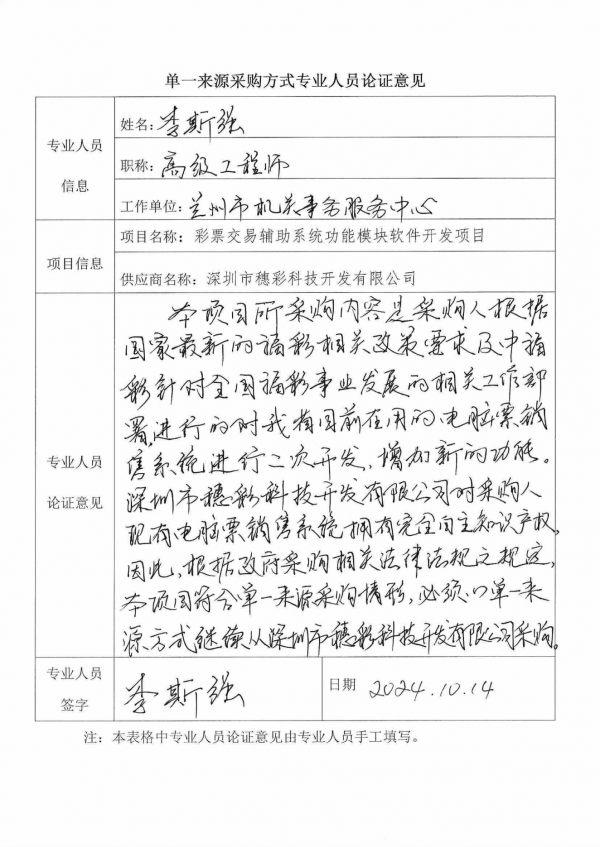 单一来源采购方式专业人员论证意见
专业人员
信息
姓名：李斯强
职称：高级工程师
工作单位：兰州市机关事务服务中心
项目信息
项目名称：彩票交易辅助系统功能模块软件开发项目
供应商名称：深圳市穗彩科技开发有限公司
专业人员
论证意见
本项目所采购内容是采购人根据
国家最新的福彩相关政策要求及中福
彩针对全国福彩事业发展的相关工作部
署，进行的对我省目前在用的电脑票销
售系统进行二次开发，增加新的功能。
深圳市穗彩科技开发有限公司对采购人
现有电脑票销售系统拥有完全自主知识产权，
因此，根据政府采购相关法律法规之规定，
本项目符合单一来源采购情形，必须以单一来
源方式继续从深圳市穗彩科技开发有限公司采购。
专业人员
签字
李斯强
日期
2024.10.14
注：本表格中专业人员论证意见由专业人员手工填写。